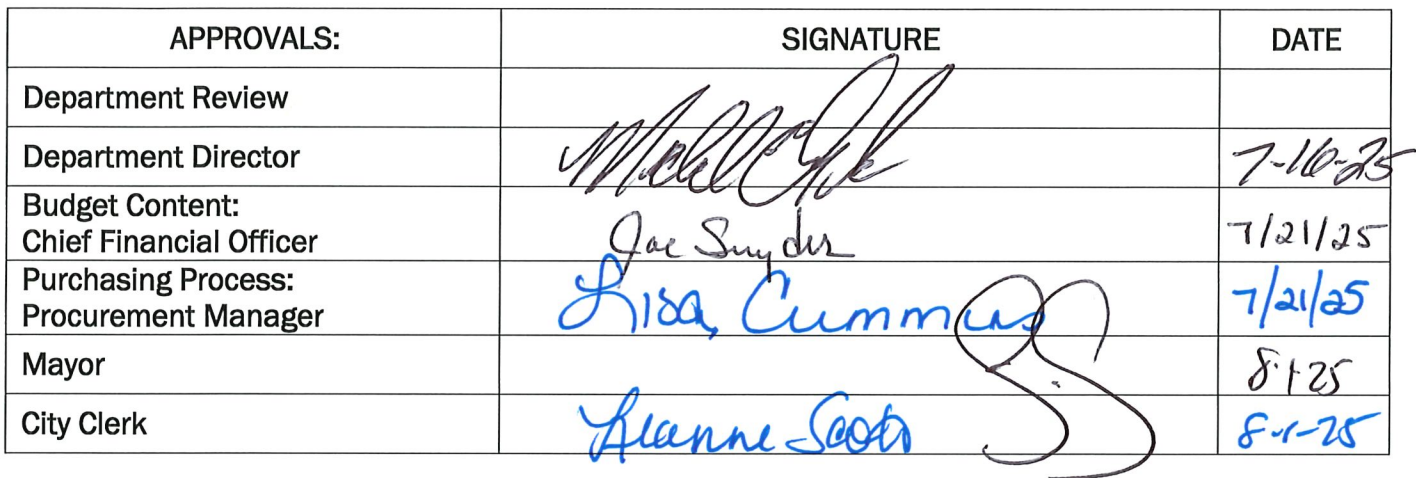 APPROVALS: SIGNATURE DATE
Department Review
Department Director 7-16-25
Budget Content:
Chief Financial Officer Joe Snyder 7/21/25
Purchasing Process:
Procurement Manager Lisa Cummins 7/21/25
Mayor 8-1-25
City Clerk Leanne Scott 8-1-25